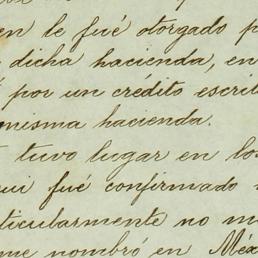 en le fué otorgado p
dicha hacienda, en
por un crédito escri
misma hacienda.
tuvo lugar en lo
ui fué confirmado
ticularmente no m
me nombró en Méx